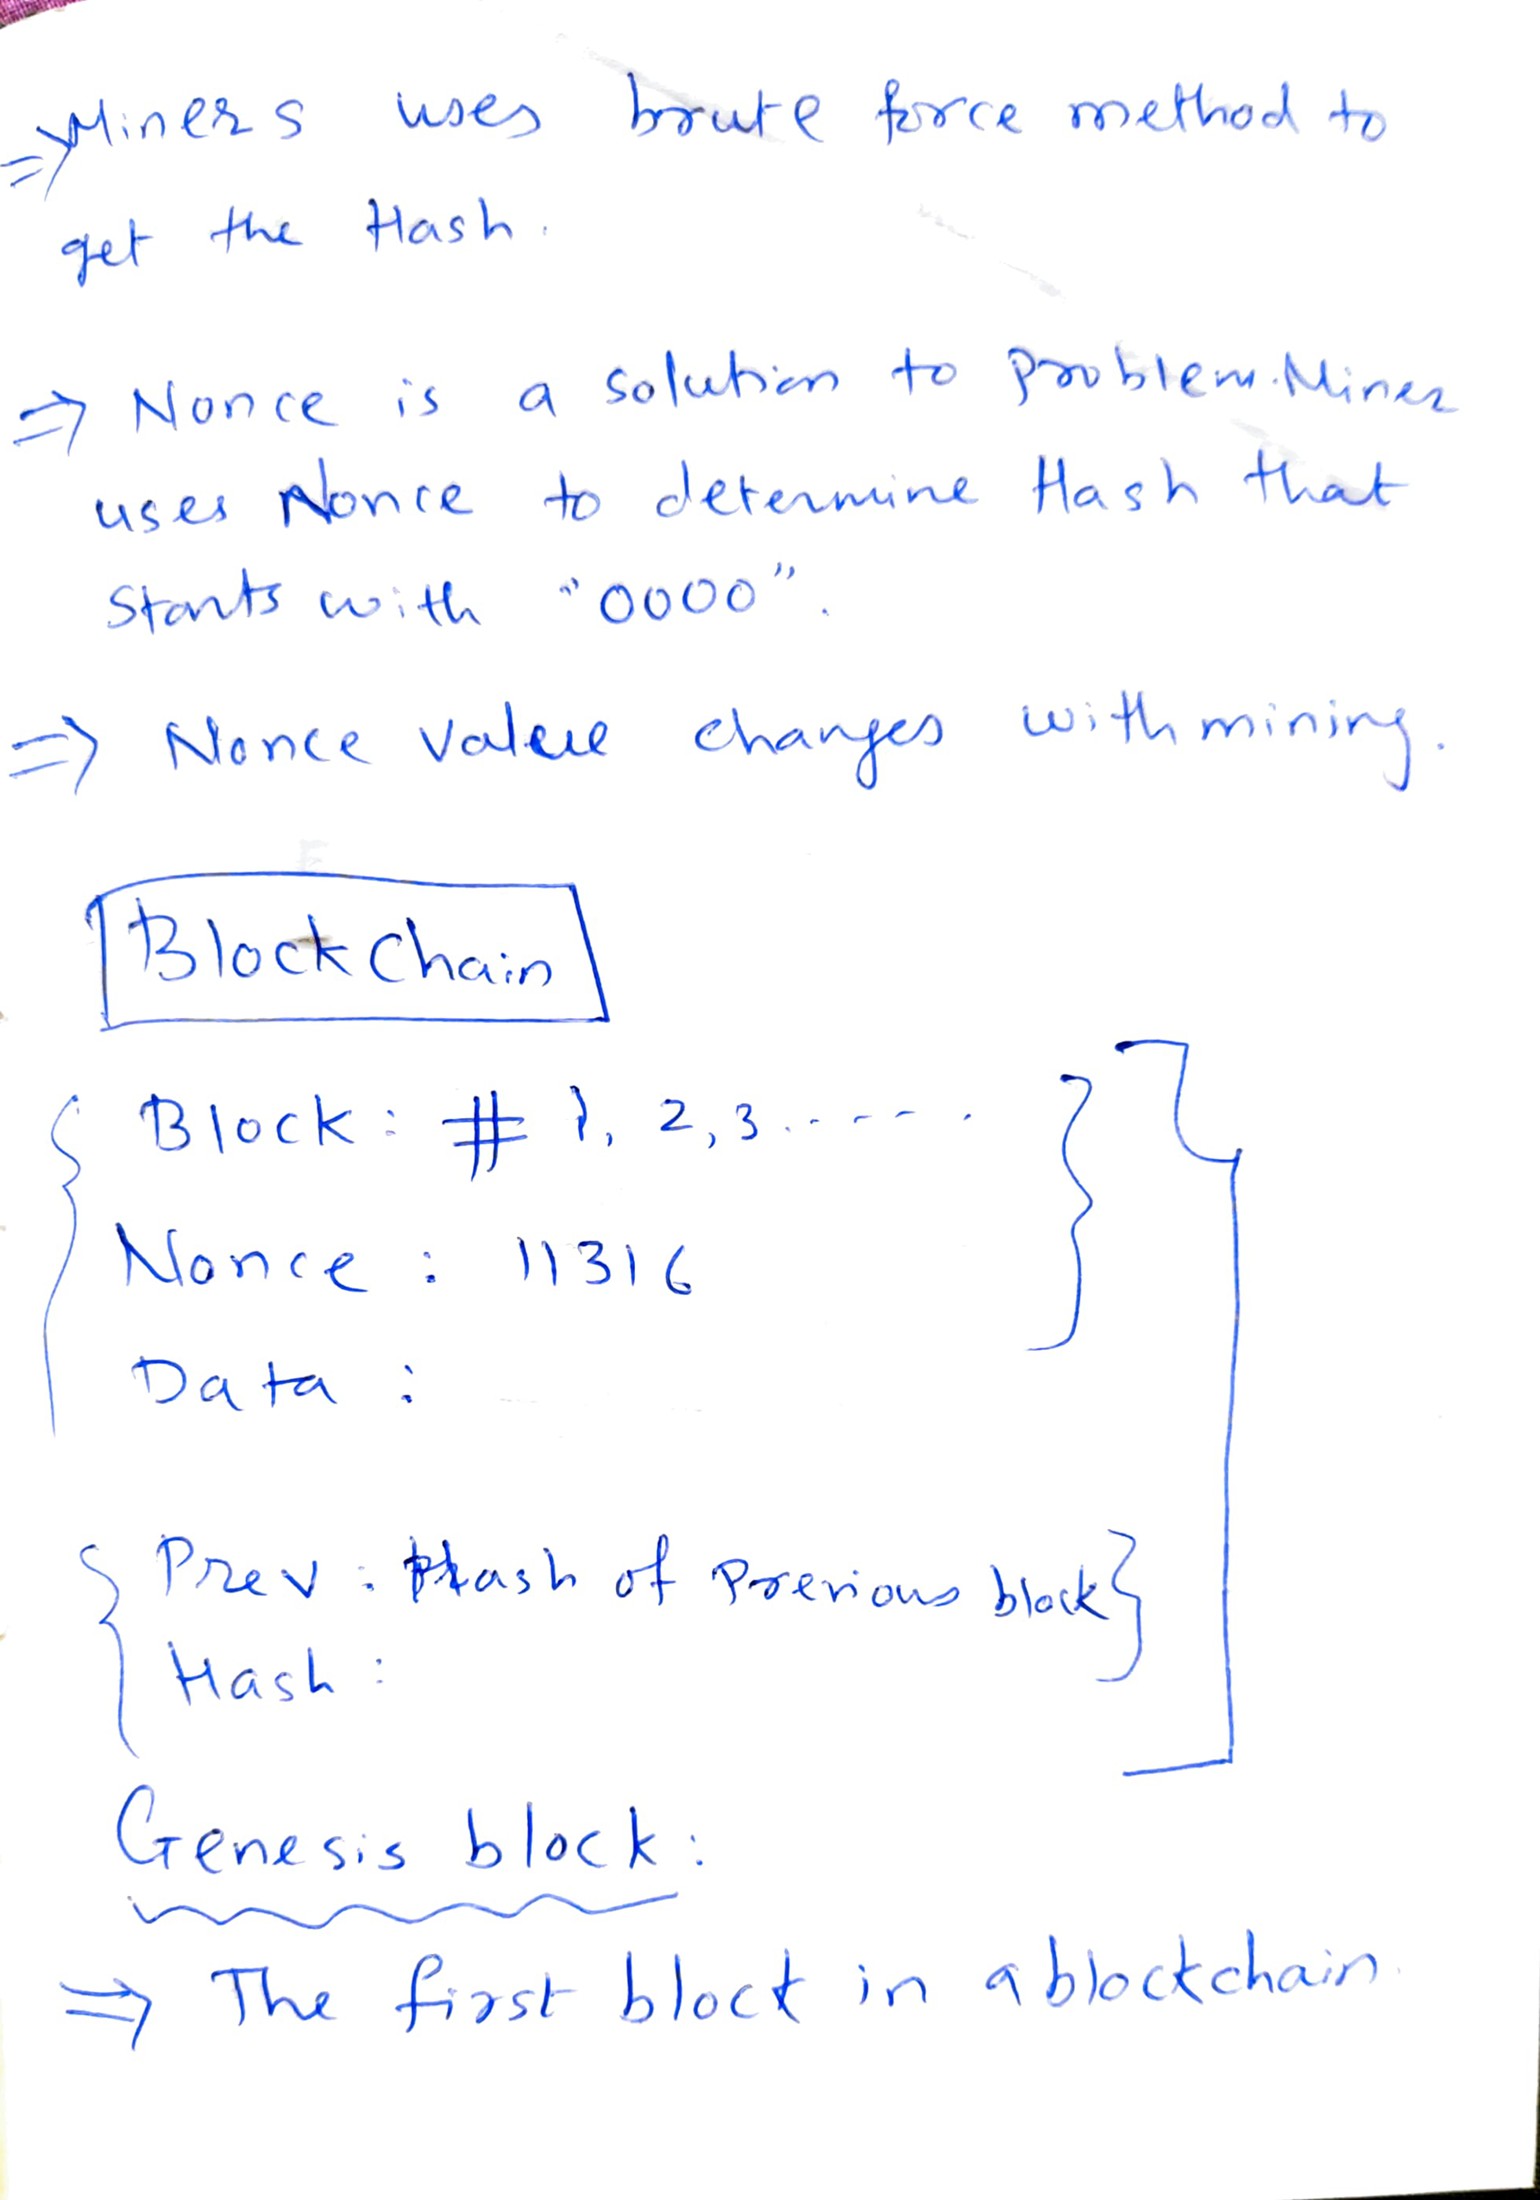 ⇒ Miners uses brute force method to
get the Hash.
⇒ Nonce is a solution to problem. Miner
uses Nonce to determine Hash that
starts with "0000".
⇒ Nonce value changes with mining.
Block Chain
Block: # 1, 2, 3.-----.
Nonce : 11316
Data :
Prev : Hash of Previous block
Hash :
Genesis block :
⇒ The first block in a blockchain.